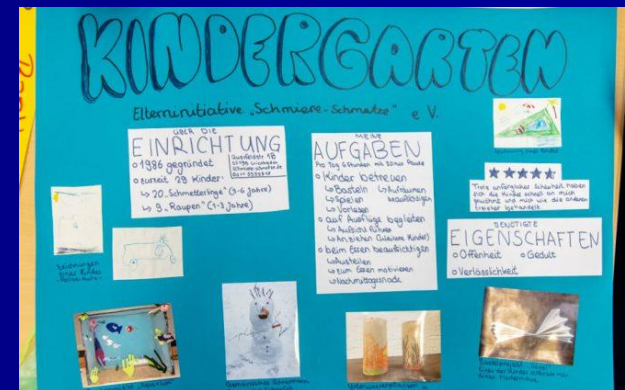 KINDERGARTEN
Elterninitiative „Schmiere-Schmatze" e V.
ÜBER DIE
EINRICHTUNG
o 1986 gegründet
o zurzeit 29 Kinder:
↳ 20 „Schmetterlinge" (3-6 Jahre)
↳ 9 „Raupen" (1-3 Jahre)
MEINE
AUFGABEN
Pro Tag 6 Stunden mit 30 min Pause
o Kinder betreuen
↳ Basteln ↳ Aufräumen
↳ Spielen
↳ Vorlesen
o auf Ausflüge begleiten
↳ Aufsicht führen
↳ Anziehen (kleinere Kinder)
o beim Essen beaufsichtigen
↳ Austeilen
↳ zum Essen motivieren
↳ Nachmittagssnack
Trotz anfänglicher Schüchternheit haben
sich die Kinder schnell an mich
gewöhnt und mich wie die anderen
Erzieher behandelt.
BENÖTIGTE
EIGENSCHAFTEN
o Offenheit o Gedult
o Verlässlichkeit
Zeichnungen
eines Kindes